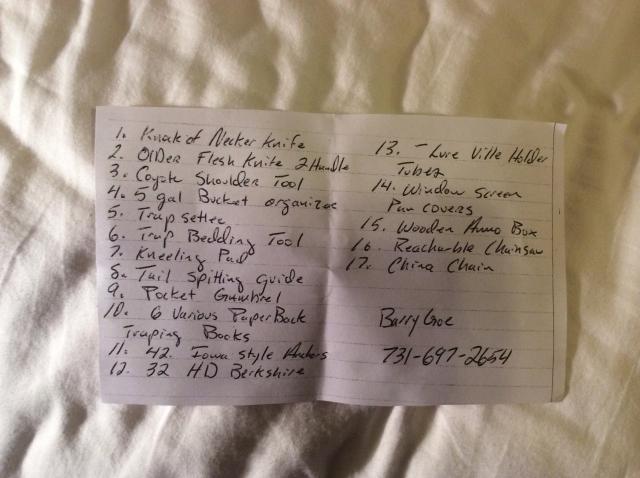 1. Knock of Necker Knife
2. OlDer Flesh Knife 2 Handle
3. Coyote Shoulder Tool
4. 5 gal Bucket organizer
5. Trap setter
6. Trap Bedding Tool
7. Kneeling Pad
8. Tail Spitting guide
9. Pocket Gambrel
10. 6 Various PaperBack
Traping Books
11. 42. Iowa style Anchors
12. 32 HD Berkshire
13. - Lure Ville Holder
Tubes
14. Window Screen
Pan covers
15. Wooden Ammo Box
16. Reacharble Chainsaw
17. China Chain
Barry
731-697-2654